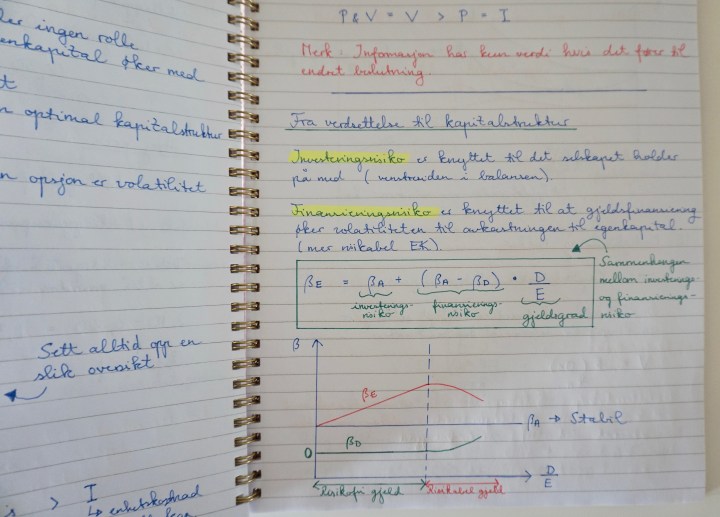 ingen rolle
enkapital øker med
t
n optimal kapitalstruktur
n opsjon er volatilitet
Sett alltid opp en
slik oversikt
> I
↳ enhetskostnad
P & V = V > P = I
Merk: Informasjon har kun verdi hvis det fører til
endret beslutning.
Fra verdsettelse til kapitalstruktur
Investeringsrisiko er knyttet til det selskapet holder
på med (venstresiden i balansen).
Finansieringsrisiko er knyttet til at gjeldsfinansiering
øker volatiliteten til avkastningen til egenkapital.
(mer risikabel EK).
Sammenhengen
mellom investerings-
og finansierings-
risiko
βE = βA + (βA - βD) · D/E
investerings-
risiko
finansierings-
risiko
gjeldsgrad
β
βE
βA → Stabil
βD
0
D/E
Risikofri gjeld
Risikabel gjeld